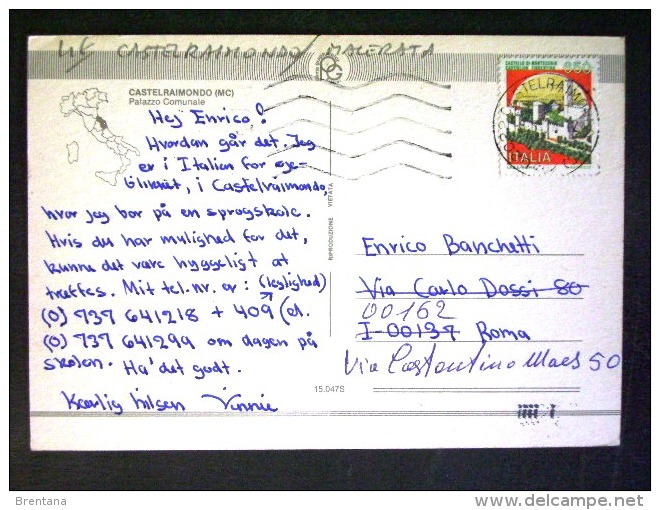 CASTELRAIMONDO / MACERATA
CASTELRAIMONDO (MC)
Palazzo Comunale
Hej Enrico!
Hvordan går det. Jeg
er i Italien for øje-
blikket, i Castelraimondo,
hvor jeg bor på en sprogskole.
Hvis du har mulighed for det,
kunne det være hyggeligt at
træffes. Mit tel.nr. er: (lejlighed)
(0) 737 641218 + 409 (el.
(0) 737 641299 om dagen på
skolen. Ha' det godt.
Kærlig hilsen Vinnie
RIPRODUZIONE VIETATA
15.047S
CASTELLO DI MONTECCHIO
CASTIGLION FIORENTINO
850
ITALIA
CASTELRAIM
Enrico Banchetti
Via Carlo Dossi 80
00162
I-00137 Roma
Via Costantino Maes 50
Brentana
delcampe.net